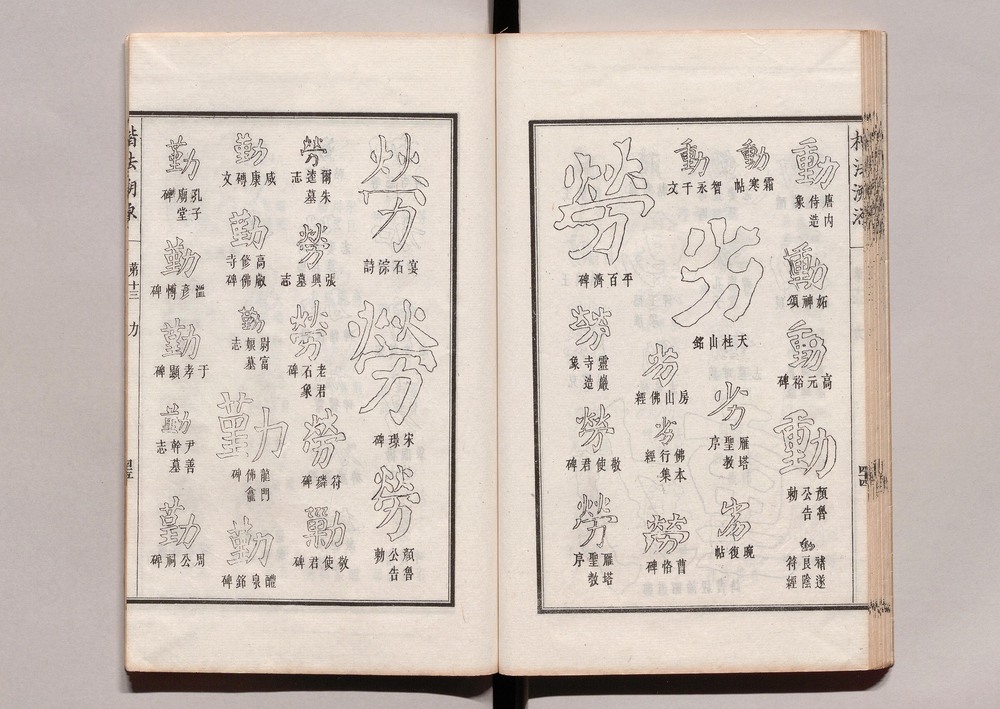 楷法溯源
四四
動
唐内侍造象
動
妬神頌
動
高元裕碑
動
顏魯公告勅
動
褚遂良陰符經
動
霜寒帖
動
智永千文
劣
天柱山銘
劣
雁塔聖教序
劣
復帖
劣
房山佛經
劣
佛本行集經
勞
曹恪碑
勞
平百濟碑
勞
靈巖寺造象
勞
敬使君碑
勞
雁塔聖教序
勞
石淙詩
勞
宋璟碑
勞
顏魯公告勅
勞
爾朱逵墓志
勞
張興墓志
勞
老君石象碑
勞
苻璘碑
敬使君碑
勤
咸康磚文
勤
高叡修佛寺碑
勤
尉富娘墓志
勤
龍門佛龕碑
勤
醴泉銘碑
勤
孔子廟堂碑
勤
溫彥博碑
勤
于孝顯碑
勤
尹善幹墓志
勤
周公祠碑
楷法溯源
第十三
力
四五